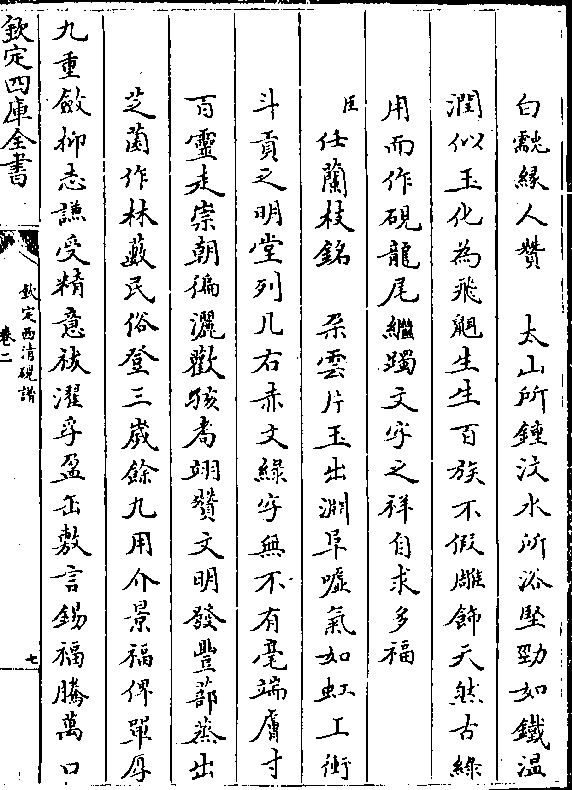 人贊　太山所鍾汶水所浴堅勁如鐵溫
潤似玉化為飛䶉生生百族不假雕飾天然古綠
用而作硯龍尾繼躅文字之祥自求多福
臣任蘭枝銘　朶雲片玉出淵阜噓氣如虹工銜
斗貢之明堂列几右赤文綠字無不有毫端膚寸
百靈走崇朝徧灑歡孩耇翊贊文明發豐蔀蒸出
芝菌作林藪民俗登三歲餘九用介景福俾單厚
九重斂抑志謙受精意祓濯孚盈缶敷言錫福騰萬口
欽定四庫全書
欽定西清硯譜
卷二
七